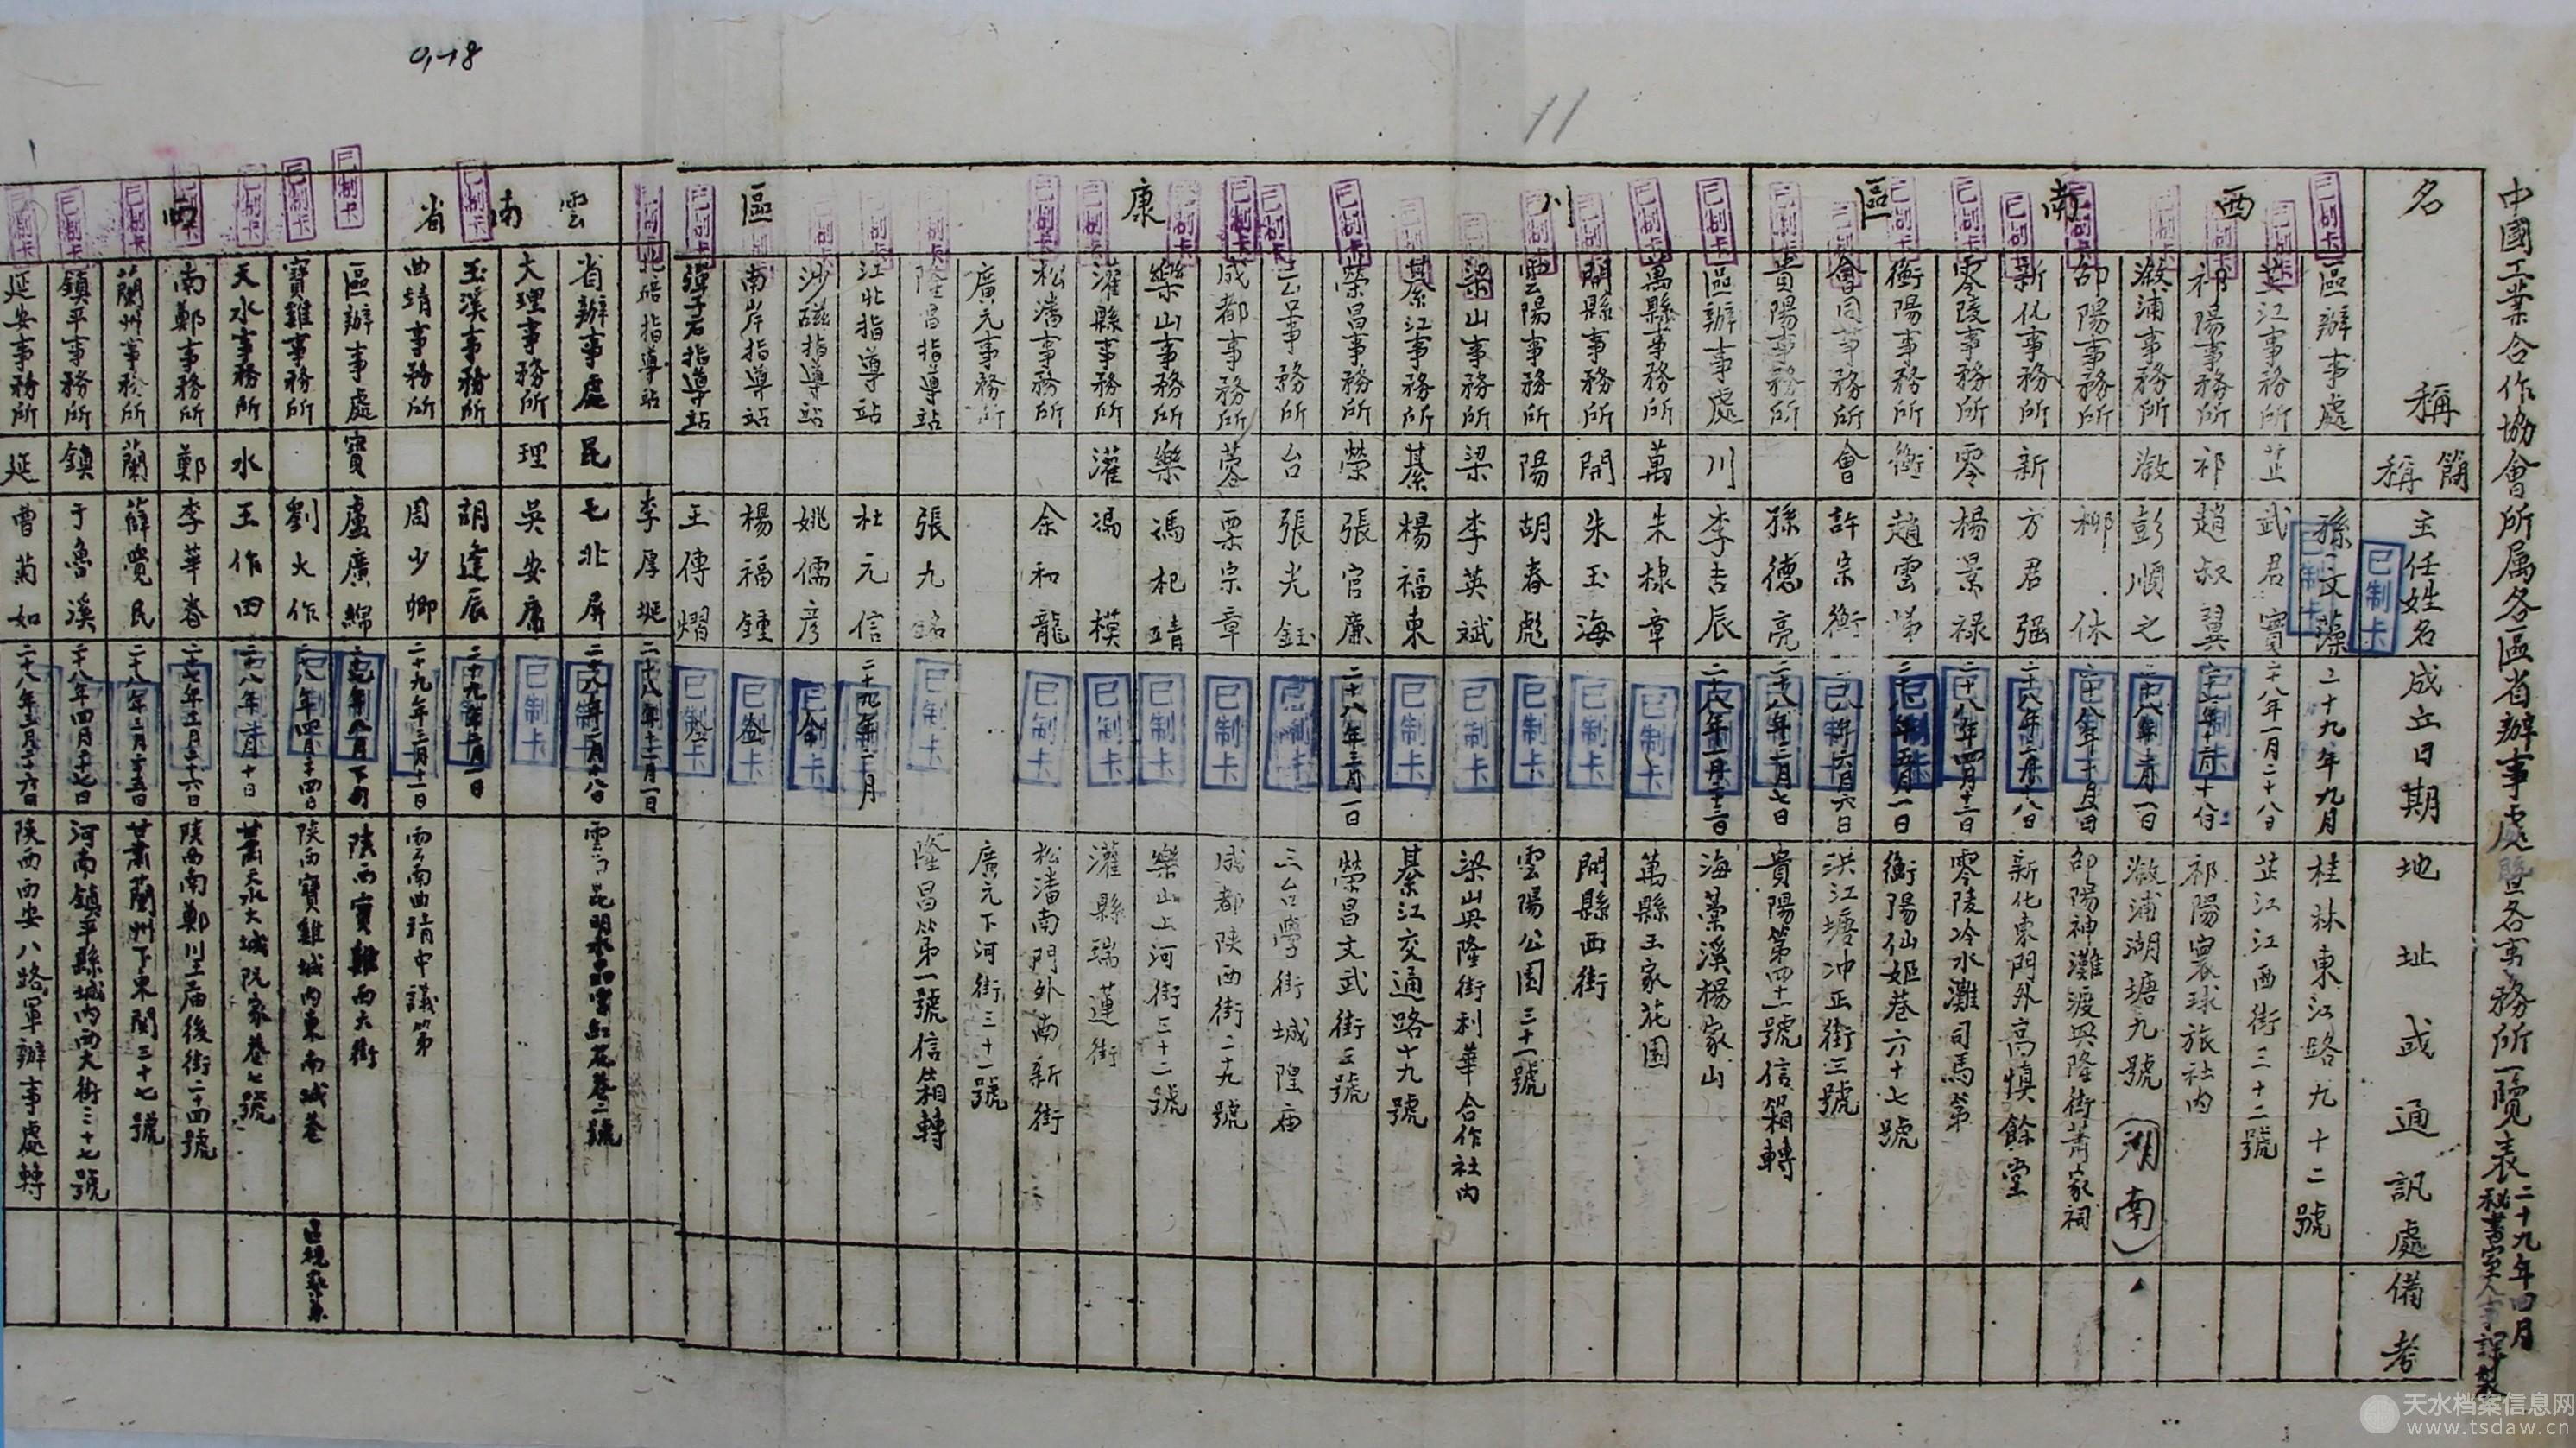 0,18
11
中國工業合作協會所屬各區省辦事處暨各事務所一覽表
二十九年四月
秘書室人事課製
名稱 簡稱 主任姓名 成立日期 地址或通訊處 備考
西南區
區辦事處 孫文藻 二十九年九月 桂林東江路九十二號
芷江事務所 芷 武君寶 二十八年一月二十八日 芷江江西街三十二號
祁陽事務所 祁 趙叔翼 祁陽寰球旅社內
漵浦事務所 漵 彭順之 漵浦湖塘九號(湖南)
邵陽事務所 柳休 邵陽神灘渡興隆街菁家祠
新化事務所 新 方君强 新化東門外高慎餘堂
零陵事務所 零 楊景禄 二十八年四月十二日 零陵冷水灘司馬第
衡陽事務所 衡 趙雲 衡陽仙姬巷六十七號
會同事務所 會 許宗衡 洪江塘冲正街三號
貴陽事務所 孫德亮 二十八年二月七日 貴陽第四十一號信箱轉
川康區
區辦事處 川 李吉辰 海棠溪楊家山
萬縣事務所 萬 朱棣章 萬縣王家花園
開縣事務所 開 朱玉海 開縣西街
雲陽事務所 陽 胡春彪 雲陽公園三十一號
梁山事務所 梁 李英斌 梁山興隆街利華合作社內
綦江事務所 綦 楊福東 綦江交通路十九號
榮昌事務所 榮 張官廉 二十八年三月一日 榮昌文武街五號
三台事務所 台 張光鈺 三台學街城隍庙
成都事務所 蓉 栗宗章 成都陕西街二十九號
樂山事務所 樂 馮杞靖 樂山上河街三十二號
灌縣事務所 灌 馮模 灌縣瑞蓮街
松潘事務所 余和龍 松潘南門外南新街
廣元事務所 廣元下河街三十一號
隆昌指導站 張九銘 隆昌第一號信箱轉
江北指導站 杜元信 二十九年一月
沙磁指導站 姚儒彦 仝
南岸指導站 楊福鍾 仝
彈子石指導站 王傳熠 仝
北碚指導站 李厚埏 二十八年十二月一日
雲南省
省辦事處 昆 毛北屏
大理事務所 理 吳安庸
玉溪事務所 胡達辰
曲靖事務所 周少卿 二十九年三月十一日 雲南曲靖中議第
西
區辦事處 寶 盧廣綿 陕西寶雞西大街
寶雞事務所 劉大作 陕西寶雞城內東南城巷
天水事務所 水 王作田 甘肅天水大城阮家巷七號
南鄭事務所 鄭 李華春 陕西南鄭川王庙後街二十四號
蘭州事務所 蘭 薛覺民 甘肅蘭州下東關三十七號
鎮平事務所 鎮 于魯溪 二十八年四月十七日 河南鎮平縣城內西大街三十七號
延安事務所 延 曹菊如 陕西西安八路軍辦事處轉
已制卡
天水档案信息网
www.tsdaw.cn